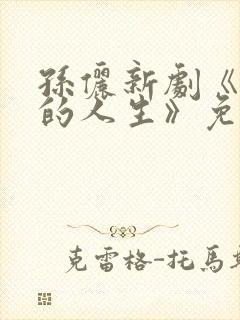 孫儷新劇《
的人生》免
克雷格-托馬斯